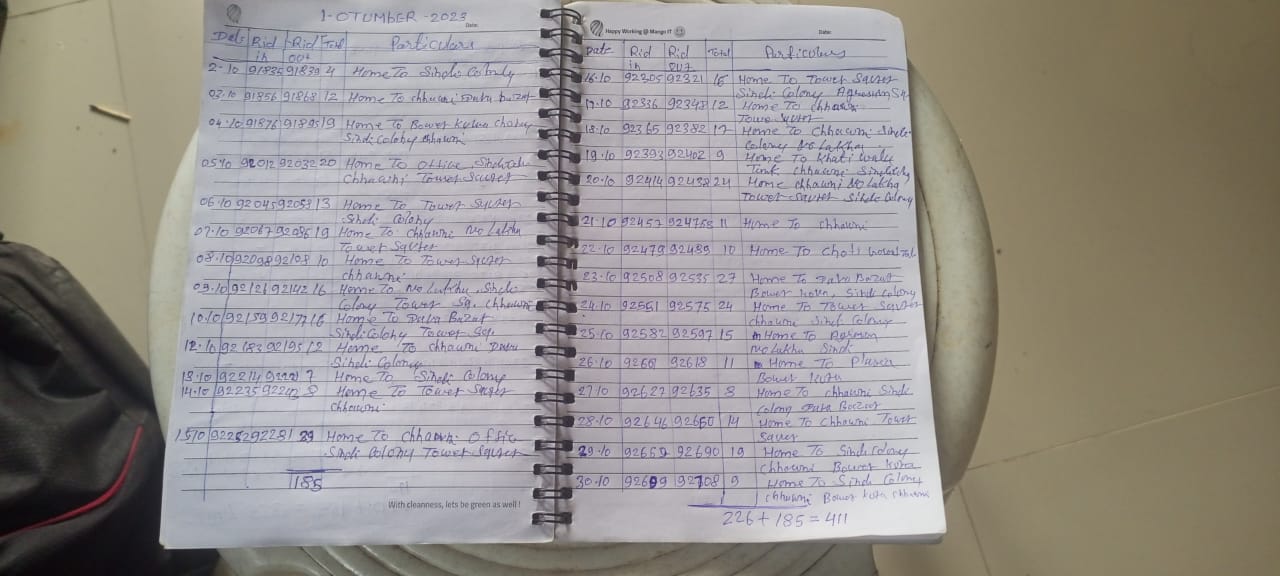 1-OTUMBER-2023
Date:
Dels Rid in Rid out Total Particulars
2-10 91835 91839 4 Home To Sindi Colony
03.10 91856 91868 12 Home To chhawni Daba bazar
04.10 91876 91895 19 Home To Bower Kuwa
Sindi Colony chhawni
05.10 92012 92032 20 Home To Office
Chhawni Tower Sqver
06.10 92045 92058 13 Home To Tower Sqver
Sindi Colony
07.10 92067 92086 19 Home To Chhawni No Lakha
Tower Sqver
08.10 92098 92108 10 Home To Tower Sqver
chhawni
09.10 92126 92142 16 Home To No Lakha, Sindi
Colony Tower Sq. chhawni
10.10 92159 92177 16 Home To Daba Bazar
Sindi Colony Tower Sqr
12.10 92183 92195 12 Home To chhawni Daba
Sindi Colony
13.10 92214 7 Home To Sindi Colony
14.10 92235 8 Home To Tower Sqver
Chhawni
15.10 92281 29 Home To Chhawni Office
Sindi Colony Tower Sqver
185
With cleanness, lets be green as well !
Happy Working @ Mango IT
Date:
Date Rid in Rid out Total Particulars
16.10 92305 92321 16 Home To Tower Sqver
Sindi Colony Agresen Sq.
17.10 92336 92348 12 Home To chhawni
Tower Sqver
18.10 92365 92382 17 Home To Chhawni Sindi
Colony No Lakha
19.10 92393 92402 9 Home To Khati wala
Tank chhawni
20.10 92414 92438 24 Home chhawni No Lakha
Tower-sqver Sindi Colony
21.10 92457 924758 11 Home To chhawni
22.10 92479 92489 10 Home To Choti
23.10 92508 92535 27 Home To Daba Bazar
Bower Kuva, Sindi Colony
24.10 92551 92575 24 Home To Tower Sqver
chhawni Sindi Colony
25.10 92582 92597 15 Home To Agresen
No Lakha Sindi
26.10 92607 92618 11 Home To
Bower Kuva
27.10 92627 92635 8 Home To chhawni Sindi
Colony Daba Bazar
28.10 92646 92660 14 Home To Chhawni Tower
Sqver
29.10 92659 92690 19 Home To Sindi Colony
Chhawni Bower Kuva
30.10 92699 92708 9 Home To Sindi Colony
chhawni Bower Kuva chhawni
226 + 185 = 411